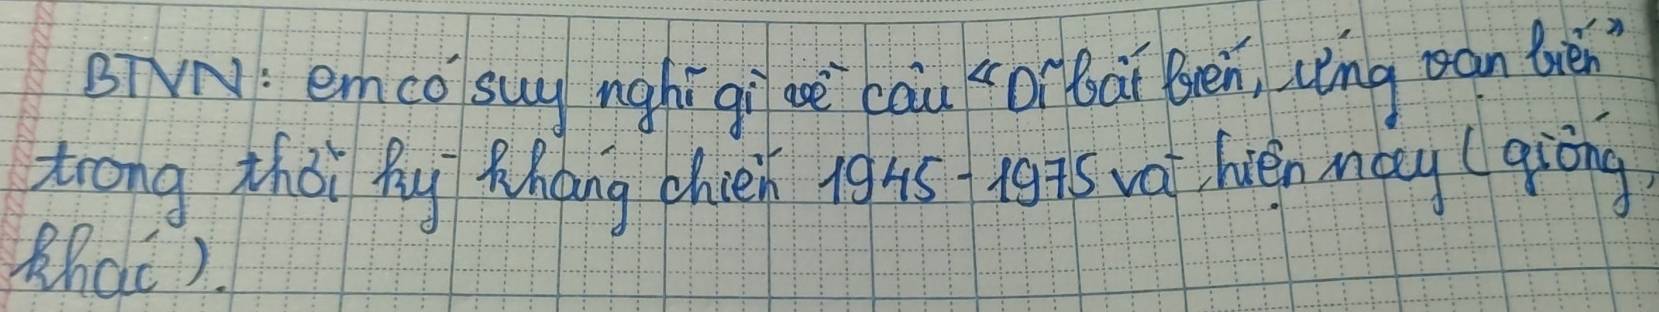 BTVN: em có suy nghĩ gì về câu "Dĩ bất biến, ứng vạn biến"
trong thời kỳ kháng chiến 1945 - 1975 và hiện nay (giống,
khác).